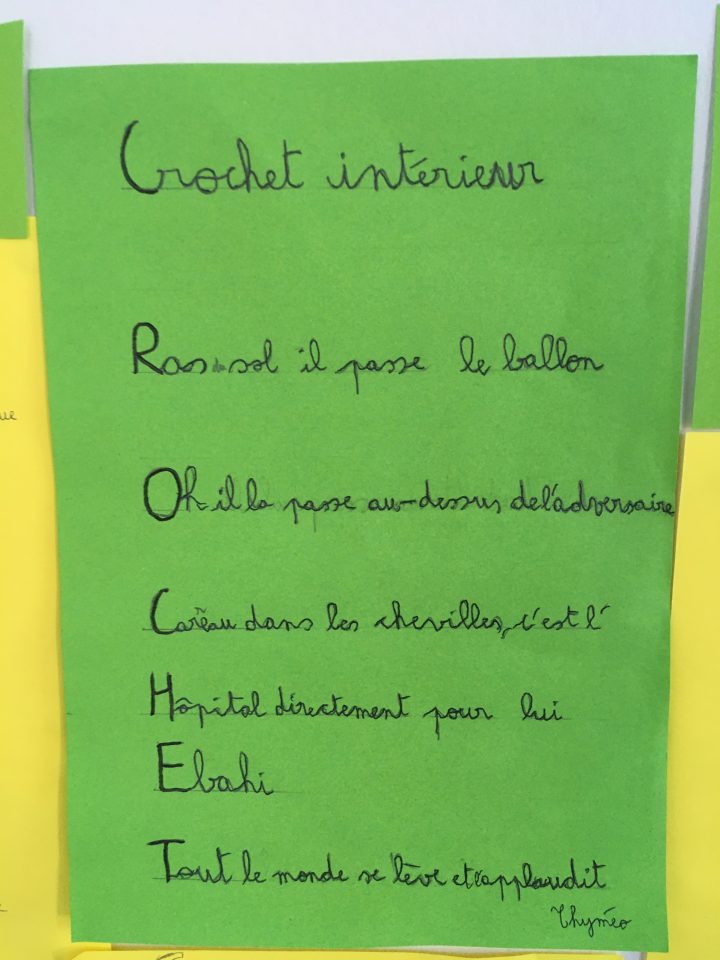 Crochet intérieur
Ras-sol il passe le ballon
Oh il la passe au-dessus de l'adversaire
Caréau dans les chevilles, c'est l'
Hôpital directement pour lui
Ebahi
Tout le monde se lève et applaudit
Thyméo
ue